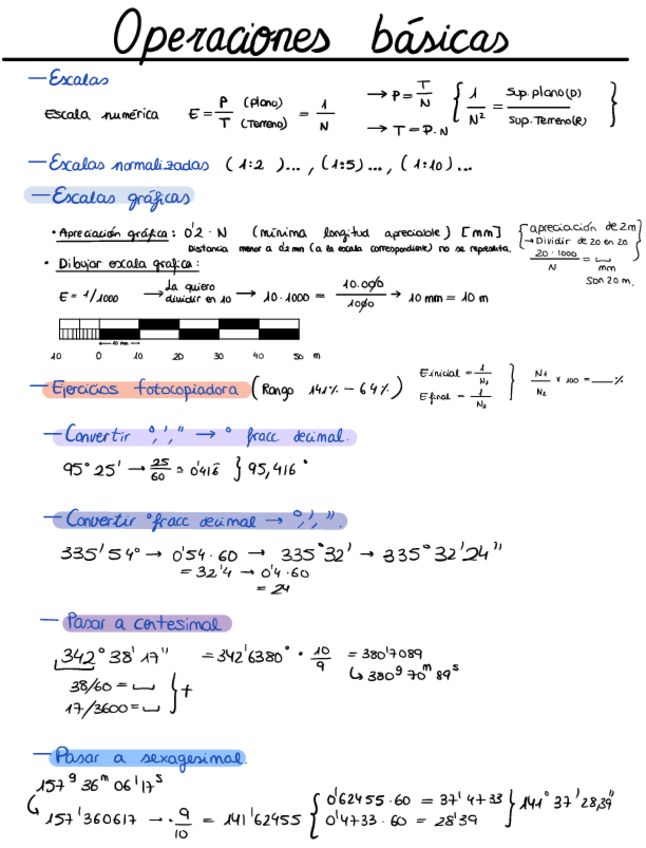 Operaciones básicas
— Escalas
Escala numérica E = P (Plano) / T (Terreno) = 1/N → P = T/N → T = P·N { 1/N² = Sup. plano(P) / Sup. Terreno(R) }
— Escalas normalizadas (1:2)..., (1:5)..., (1:10)...
— Escalas gráficas
• Apreciación gráfica: 0'2 · N (mínima longitud apreciable) [mm]
Distancia menor a 0'2 mn (a la escala correspondiente) no se representa.
[apreciación de 2m
→ Dividir de 20 en 20
20 · 1000 / N = mm
son 20 m.
• Dibujar escala grafica:
E = 1/1000 → la quiero dividir en 10 → 10 · 1000 = 10.000/1000 → 10 mm = 10 m
10 mm
10 0 10 20 30 40 50 m
— Ejercicios fotocopiadora (Rango 141% - 64%) E inicial = 1/N₁ E final = 1/N₂ } N₁/N₂ × 100 = ___%
— Convertir °,','' → ° fracc decimal.
95° 25' → 25/60 = 0'416 } 95,416°
— Convertir ° fracc decimal → °,',''.
335'54° → 0'54 · 60 → 335°32' → 335°32'24''
= 32'4 → 0'4 · 60
= 24
— Pasar a centesimal
342° 38' 17'' = 342'6380° · 10/9 = 380'7089
↳ 380g 70m 89s
38/60 =
17/3600 =
} +
— Pasar a sexagesimal.
157g 36m 06'17s
↳ 157'360617 → · 9/10 = 141'62455 { 0'62455 · 60 = 37'4733
0'4733 · 60 = 28'39 } 141° 37' 28,39''